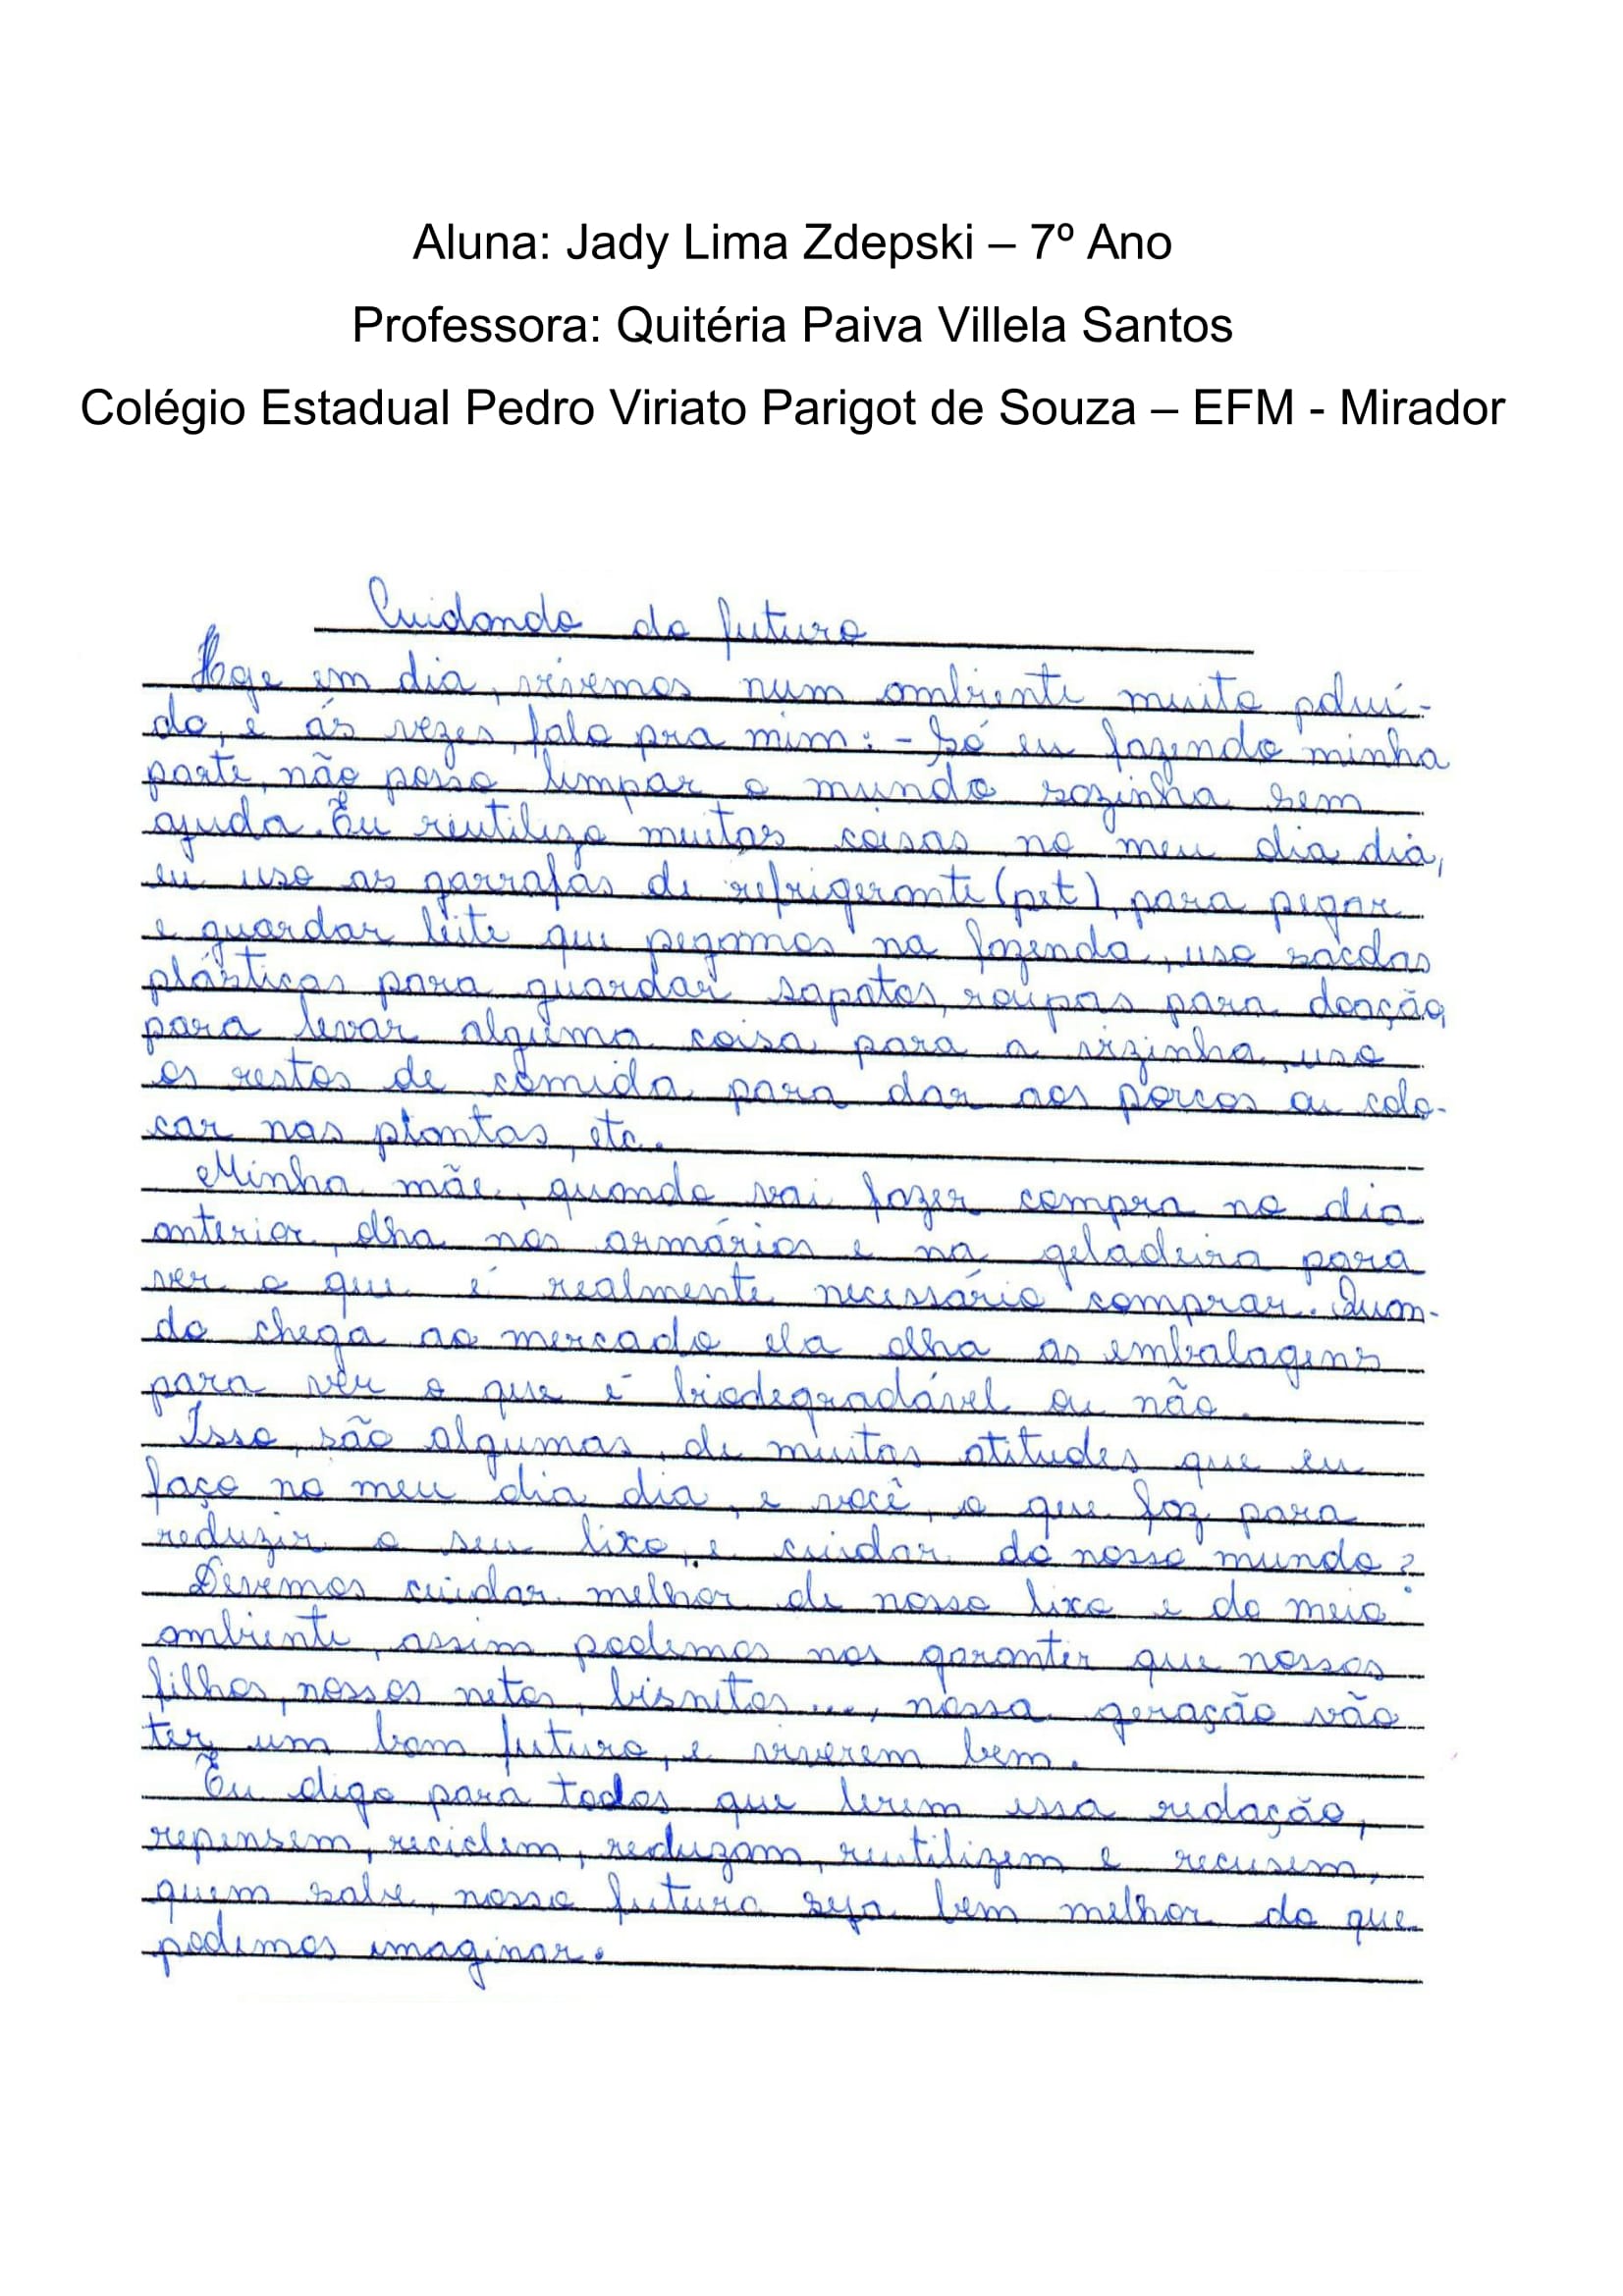 Aluna: Jady Lima Zdepski – 7º Ano
Professora: Quitéria Paiva Villela Santos
Colégio Estadual Pedro Viriato Parigot de Souza – EFM - Mirador
Cuidando do futuro
Hoje em dia, vivemos num ambiente muito poluí-
do, e ás vezes, falo pra mim: - Só eu fazendo minha
parte, não posso limpar o mundo sozinha sem
ajuda. Eu reutilizo muitas coisas no meu dia dia,
eu uso as garrafas de refrigerante (pet), para pegar
e guardar leite que pegamos na fazenda, uso sacolas
plásticas para guardar sapatos, roupas para doação,
para levar alguma coisa para a vizinha, uso
os restos de comida para dar aos porcos ou colo-
car nas plantas, etc.
Minha mãe, quando vai fazer compra no dia
anterior, olha nos armários e na geladeira para
ver o que é realmente necessário comprar. Quan-
do chega ao mercado ela olha as embalagens
para ver o que é biodegradável ou não.
Isso, são algumas, de muitas atitudes que eu
faço no meu dia dia, e você, o que faz para
reduzir o seu lixo, e cuidar do nosso mundo?
Devemos cuidar melhor de nosso lixo e do meio
ambiente, assim podemos nos garantir que nossos
filhos, nossos netos, bisnetos..., nossa geração vão
ter um bom futuro, e viverem bem.
Eu digo para todos que lerem essa redação,
repensem, reciclem, reduzam, reutilizem e recusem,
quem sabe, nosso futuro seja bem melhor do que
podemos imaginar.